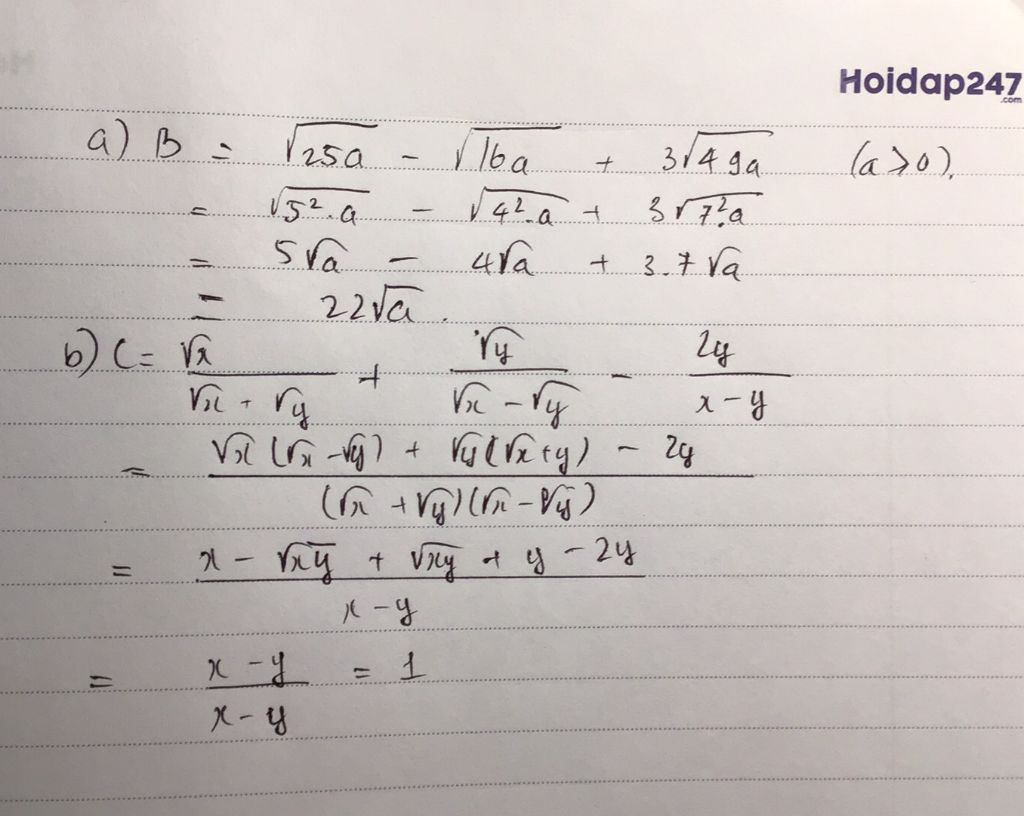 Hoidap247
.com
a) B = √25a - √16a + 3√49a (a>0).
= √5².a - √4².a + 3√7².a
= 5√a - 4√a + 3.7√a
= 22√a.
b) C = √x/(√x + √y) + √y/(√x - √y) - 2y/(x - y)
= (√x(√x - √y) + √y(√x + y) - 2y)/((√x + √y)(√x - √y))
= (x - √xy + √xy + y - 2y)/(x - y)
= (x - y)/(x - y) = 1